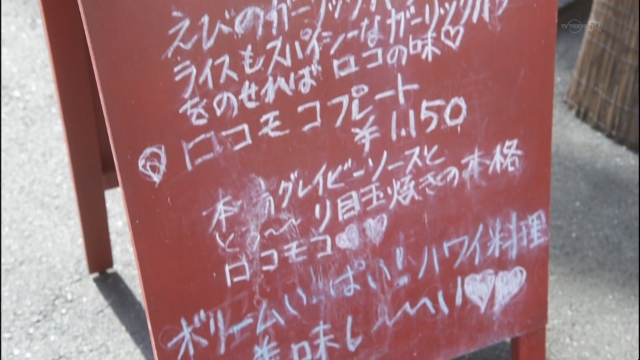 えびのガーリック
ライスもスパイシーなガーリック
をのせれば ロコの味♡
ロコモコプレート
¥1,150
本 グレイビーソースと
とろ〜り目玉焼きの本格
ロコモコ♡♡
ボリュームいっぱい!ハワイ料理
美味し〜〜い♡♡